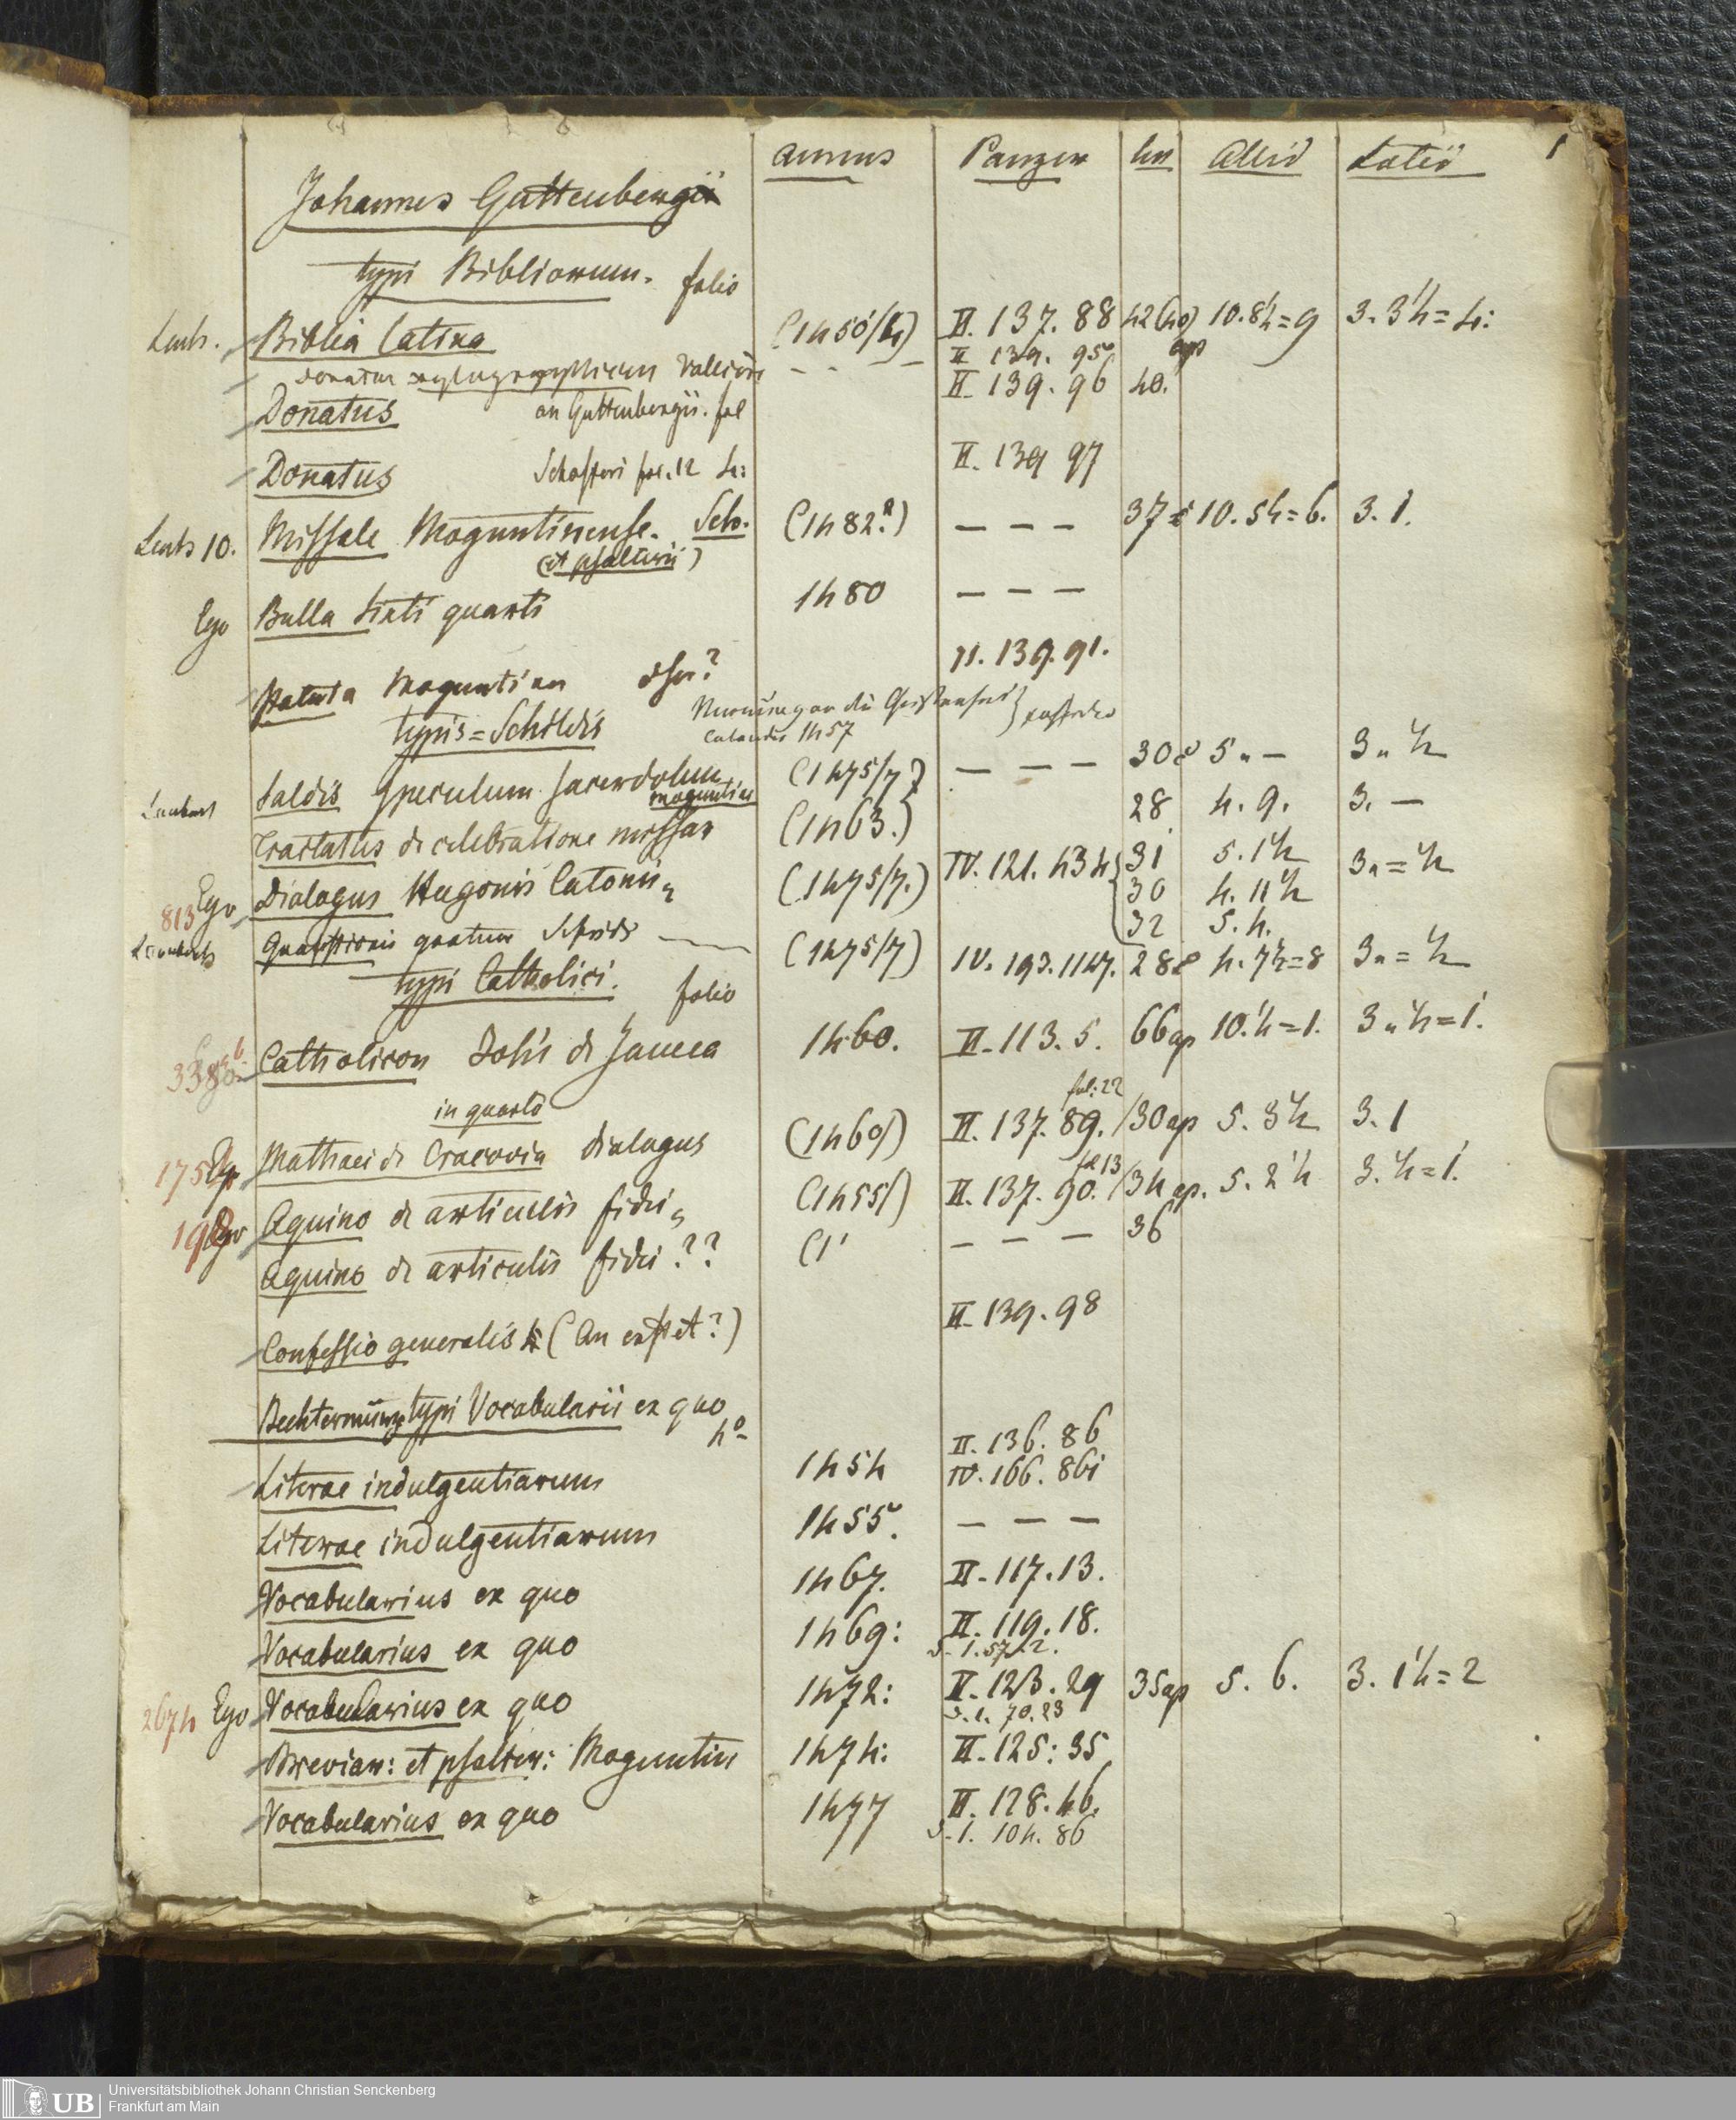 annus Panzer lin Altid Latid 1
Johannes Guttenbergii
typi Bibliorum. folio
Biblia Latina (1450/4) II. 137. 88 42(40) 10. 8½=9 3. 3½=4:
II 139. 95
Donatus an Guttenbergii. fol II. 139. 96 40.
Donatus fol. 12 II. 139 97
10. Missale Moguntinense. Sch. (1482?) — — — 37 10. 5½=6. 3. 1.
(et psalterii)
Ego Bulla Sixti quarti 1480 — — —
Statuta Moguntina II. 139. 91.
typis = Schildis 1457
Saldis Speculum sacerdotum (1475/7) — — — 30 5 „ — 3 „ ½
moguntiae
Tractatus de celebratione missar (1463.) 28 4. 9. 3. —
813 Ego Dialogus Hugonis Catonis (1475/7.) IV. 121. 434 31 5. 1½ 3 „ = ½
30 4. 11½
32 5. 4.
Quaestiones (1475/7) IV. 193. 1147. 28 4. 7½=8 3 „ = ½
typi Catholici. folio
Catholicon Johis de Janua 1460. II. 113. 5. 66 ap 10. ½=1. 3 „ ½=1.
in quarto fol: 22
175 Ego Mathaei de Cracovia dialogus (1460/) II. 137. 89. /30 ap 5. 3½ 3. 1
fol 13
Ego Aquino de articulis fidei (1455/) II. 137. 90. /34 ap. 5. 2½ 3. ½=1.
Aquino de articulis fidei ?? (1 — — — 36
Confessio generalis (an exstet?) II. 139. 98
Bechtermünze typi Vocabularii ex quo
4o
Literae indulgentiarum 1454 II. 136. 86
IV. 166. 861
Literae indulgentiarum 1455. — — —
Vocabularius ex quo 1467. II. 117. 13.
Vocabularius ex quo 1469: II. 119. 18.
S. 1. 57. 2.
2674 Ego Vocabularius ex quo 1472: II. 123. 29 35 ap 5. 6. 3. 1½=2
S. 1. 70. 23
Breviar: et psalter: Moguntin 1474: II. 125: 35
Vocabularius ex quo 1477 II. 128. 46.
S. 1. 104. 86
UB Universitätsbibliothek Johann Christian Senckenberg
Frankfurt am Main